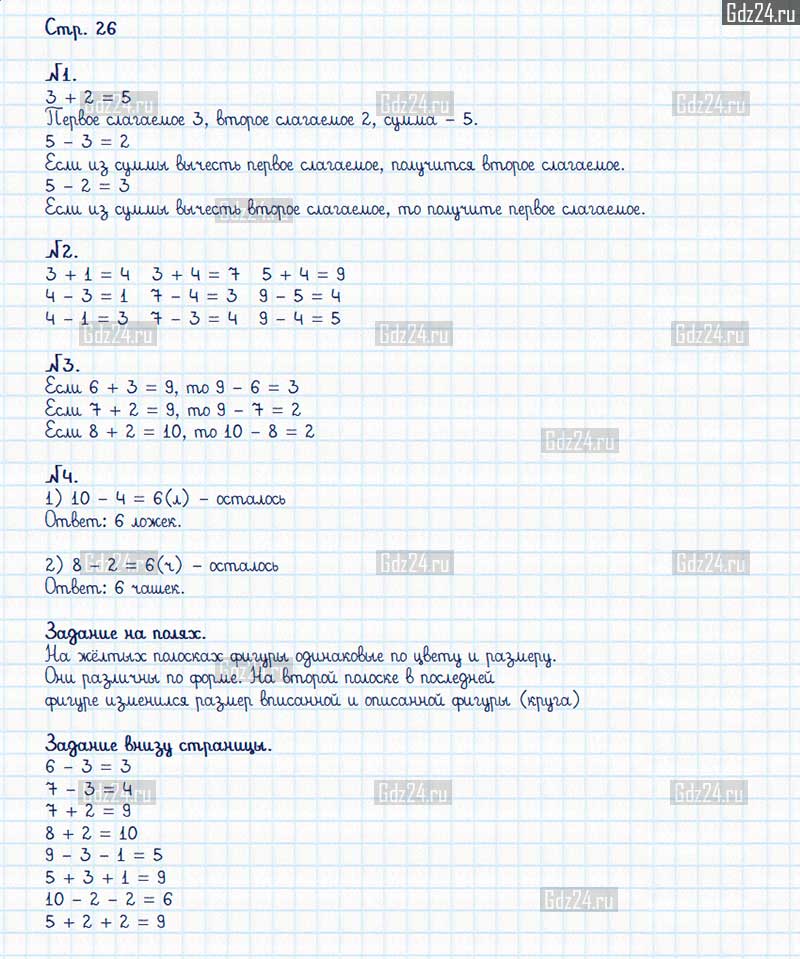 Gdz24.ru
Стр. 26
№1.
3 + 2 = 5
Первое слагаемое 3, второе слагаемое 2, сумма – 5.
5 – 3 = 2
Если из суммы вычесть первое слагаемое, получится второе слагаемое.
5 – 2 = 3
Если из суммы вычесть второе слагаемое, то получите первое слагаемое.
№2.
3 + 1 = 4 3 + 4 = 7 5 + 4 = 9
4 – 3 = 1 7 – 4 = 3 9 – 5 = 4
4 – 1 = 3 7 – 3 = 4 9 – 4 = 5
№3.
Если 6 + 3 = 9, то 9 – 6 = 3
Если 7 + 2 = 9, то 9 – 7 = 2
Если 8 + 2 = 10, то 10 – 8 = 2
№4.
1) 10 – 4 = 6(л) – осталось
Ответ: 6 ложек.
2) 8 – 2 = 6(ч) – осталось
Ответ: 6 чашек.
Задание на полях.
На жёлтых полосках фигуры одинаковые по цвету и размеру.
Они различны по форме. На второй полоске в последней
фигуре изменился размер вписанной и описанной фигуры (круга)
Задание внизу страницы.
6 – 3 = 3
7 – 3 = 4
7 + 2 = 9
8 + 2 = 10
9 – 3 – 1 = 5
5 + 3 + 1 = 9
10 – 2 – 2 = 6
5 + 2 + 2 = 9